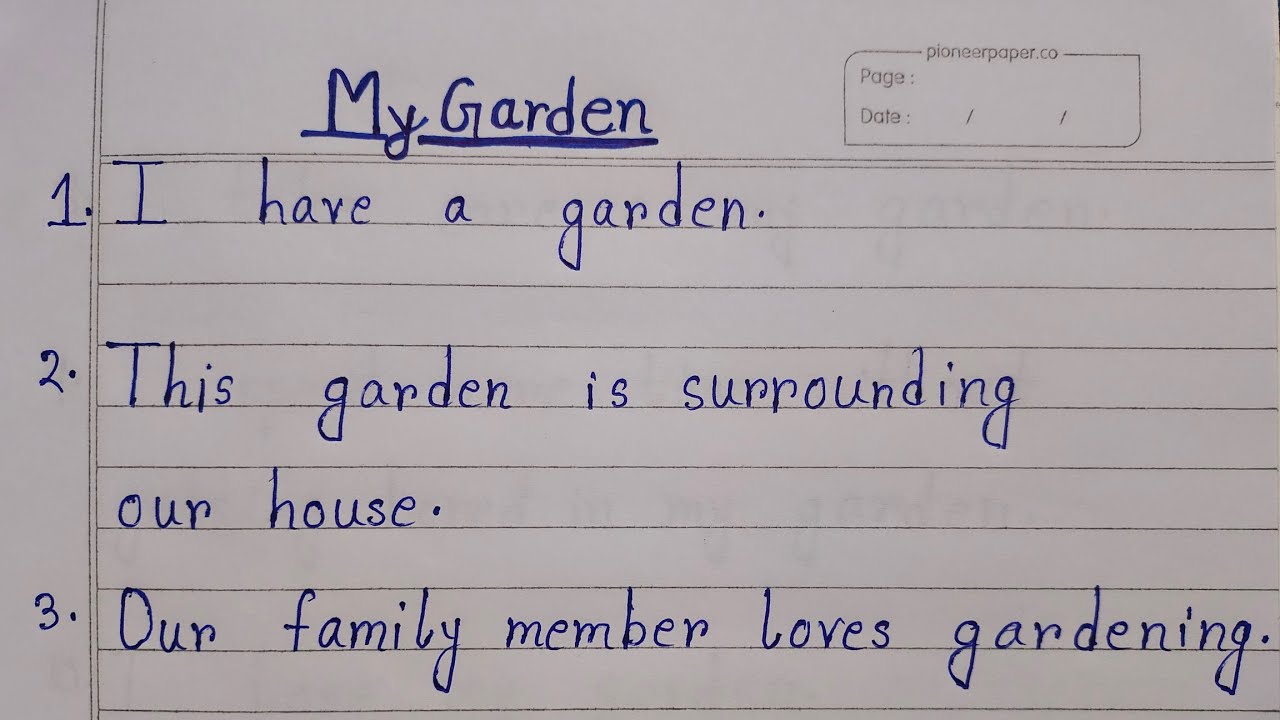 pioneerpaper.co
Page :
Date : / /
My Garden
1. I have a garden.
2. This garden is surrounding
our house.
3. Our family member loves gardening.